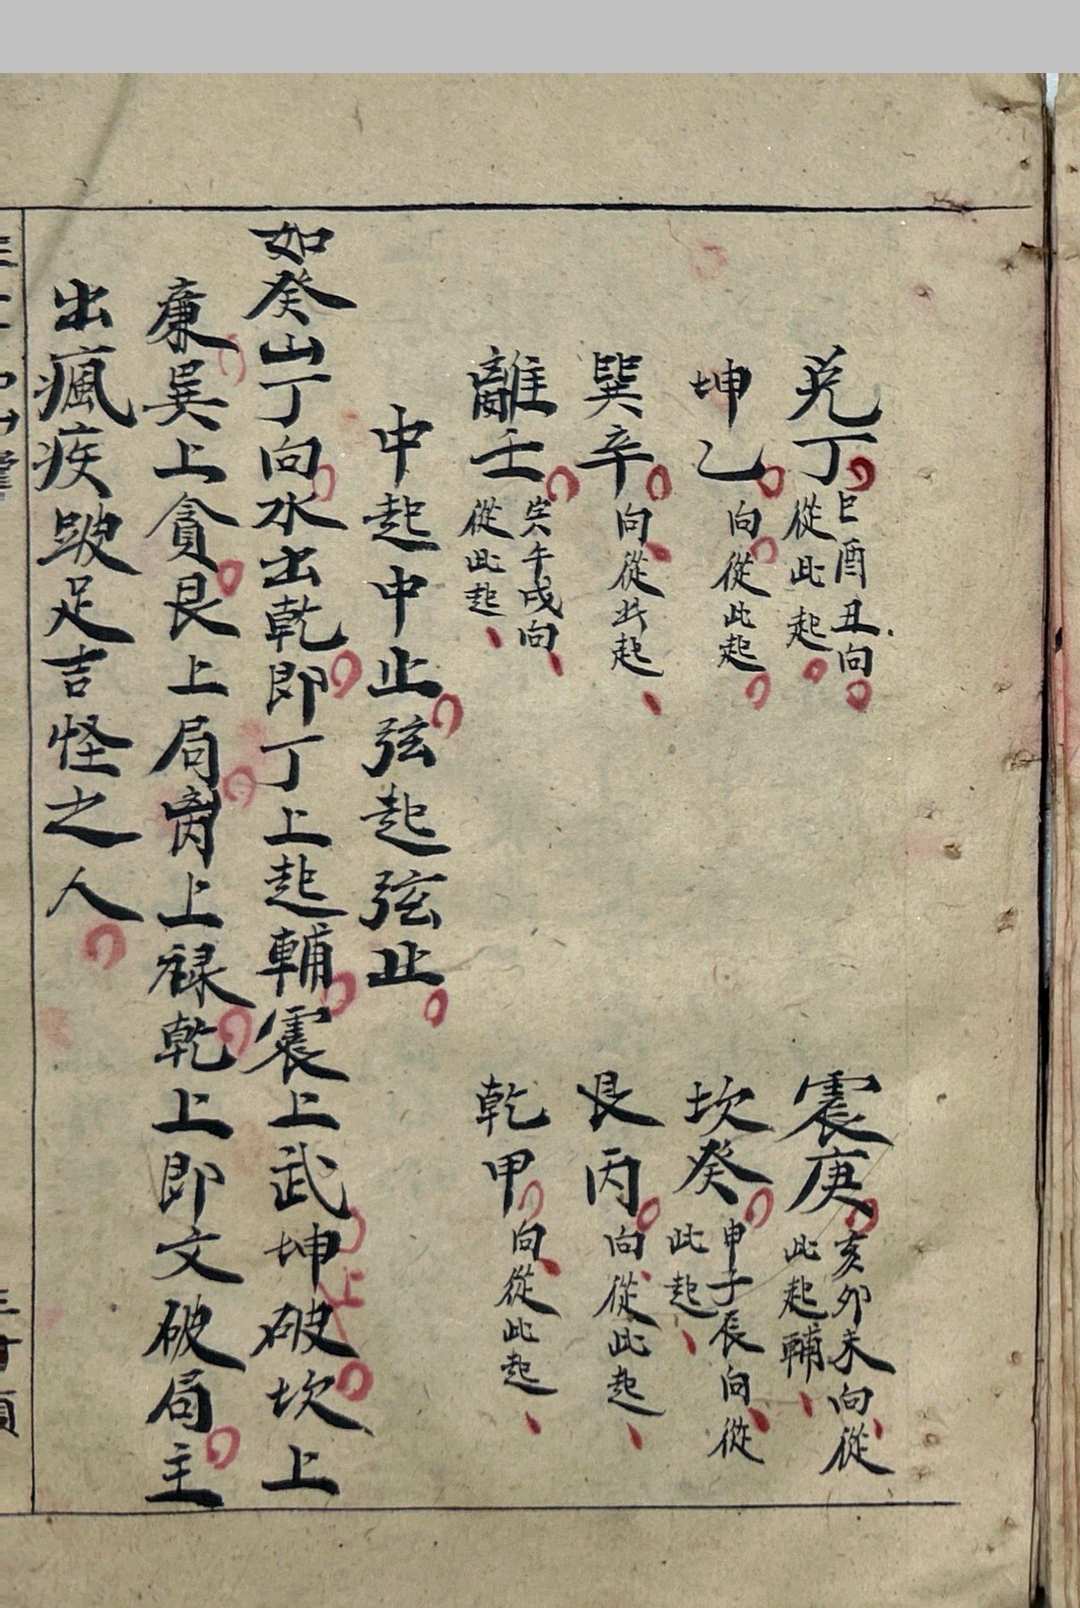 兑丁 巳酉丑向從此起
震庚 亥卯未向從此起輔
坤乙 向從此起
坎癸 申子辰向從此起
巽辛 向從此起
艮丙 向從此起
離壬 寅午戌向從此起
乾甲 向從此起
中起中止弦起弦止
如癸山丁向水出乾即丁上起輔震上武坤破坎上
廉巽上貪艮上局离上禄乾上即文破局主
出瘋疾跛足古怪之人